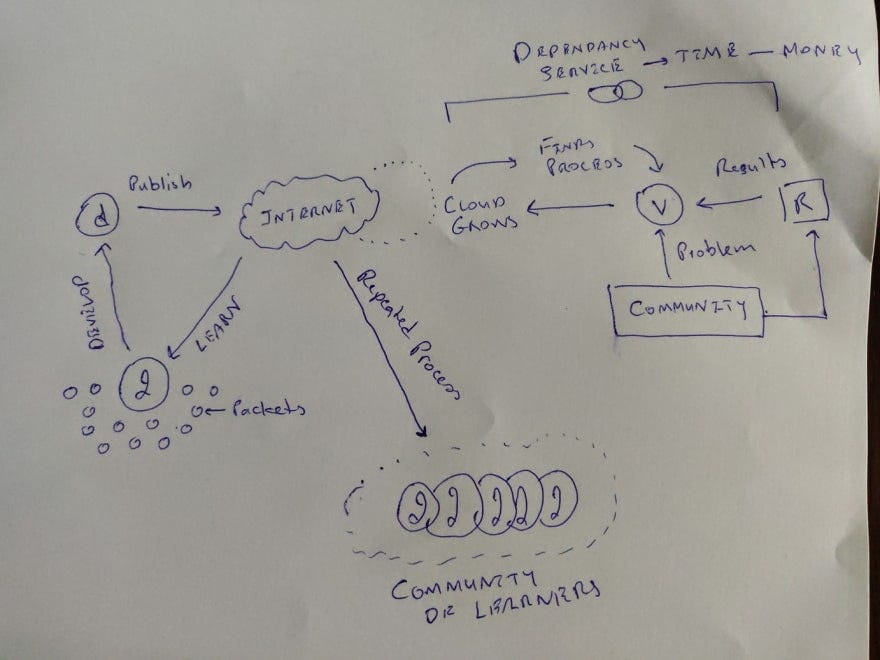 DEPENDANCY
SERVICE → TIME — MONEY
FINDS
PROCESS
Results
Publish
d
INTERNET
CLOUD
GROWS
V
R
Problem
COMMUNITY
DEVELOP
LEARN
Repeated Process
l
Packets
l l l l l
COMMUNITY
OF LEARNERS